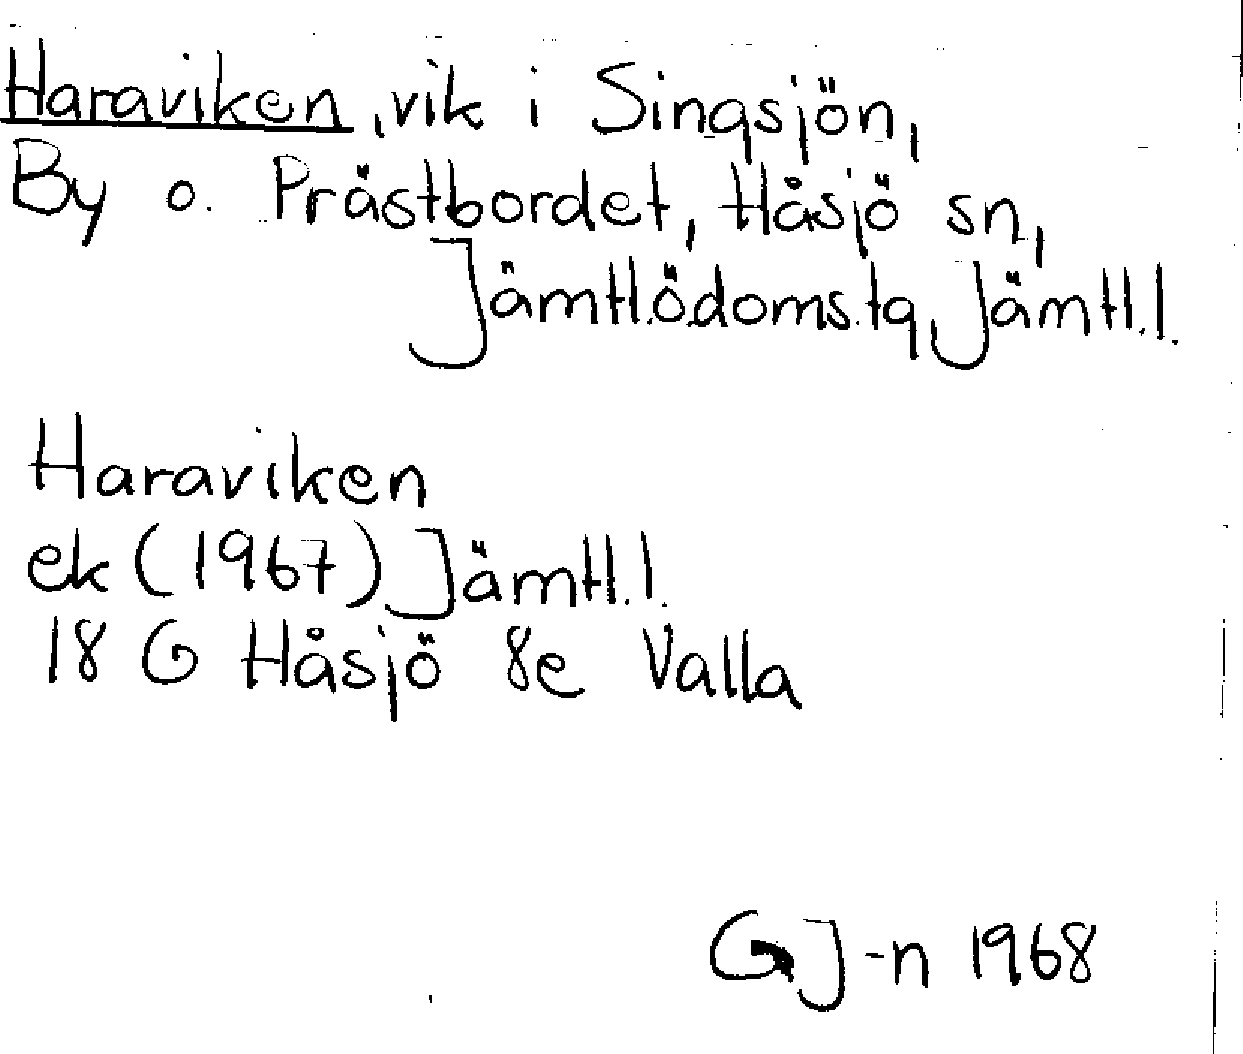 Haraviken, vik i Singsjön,
By o. Prästbordet, Håsjö sn,
Jämtl.ö.doms.tg, Jämtl.l.
Haraviken
ek (1967) Jämtl.l.
18 G Håsjö 8e Valla
GJ-n 1968